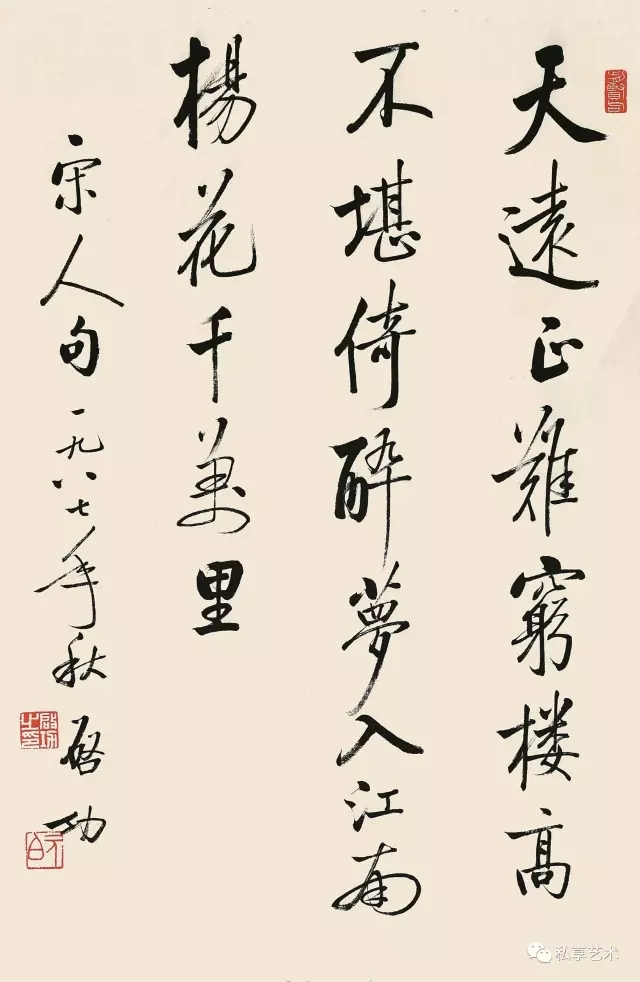 天遠正難窮楼高
不堪倚醉夢入江南
楊花千萬里
宋人句一九八七年秋 啓功
啟功之印
私享艺术